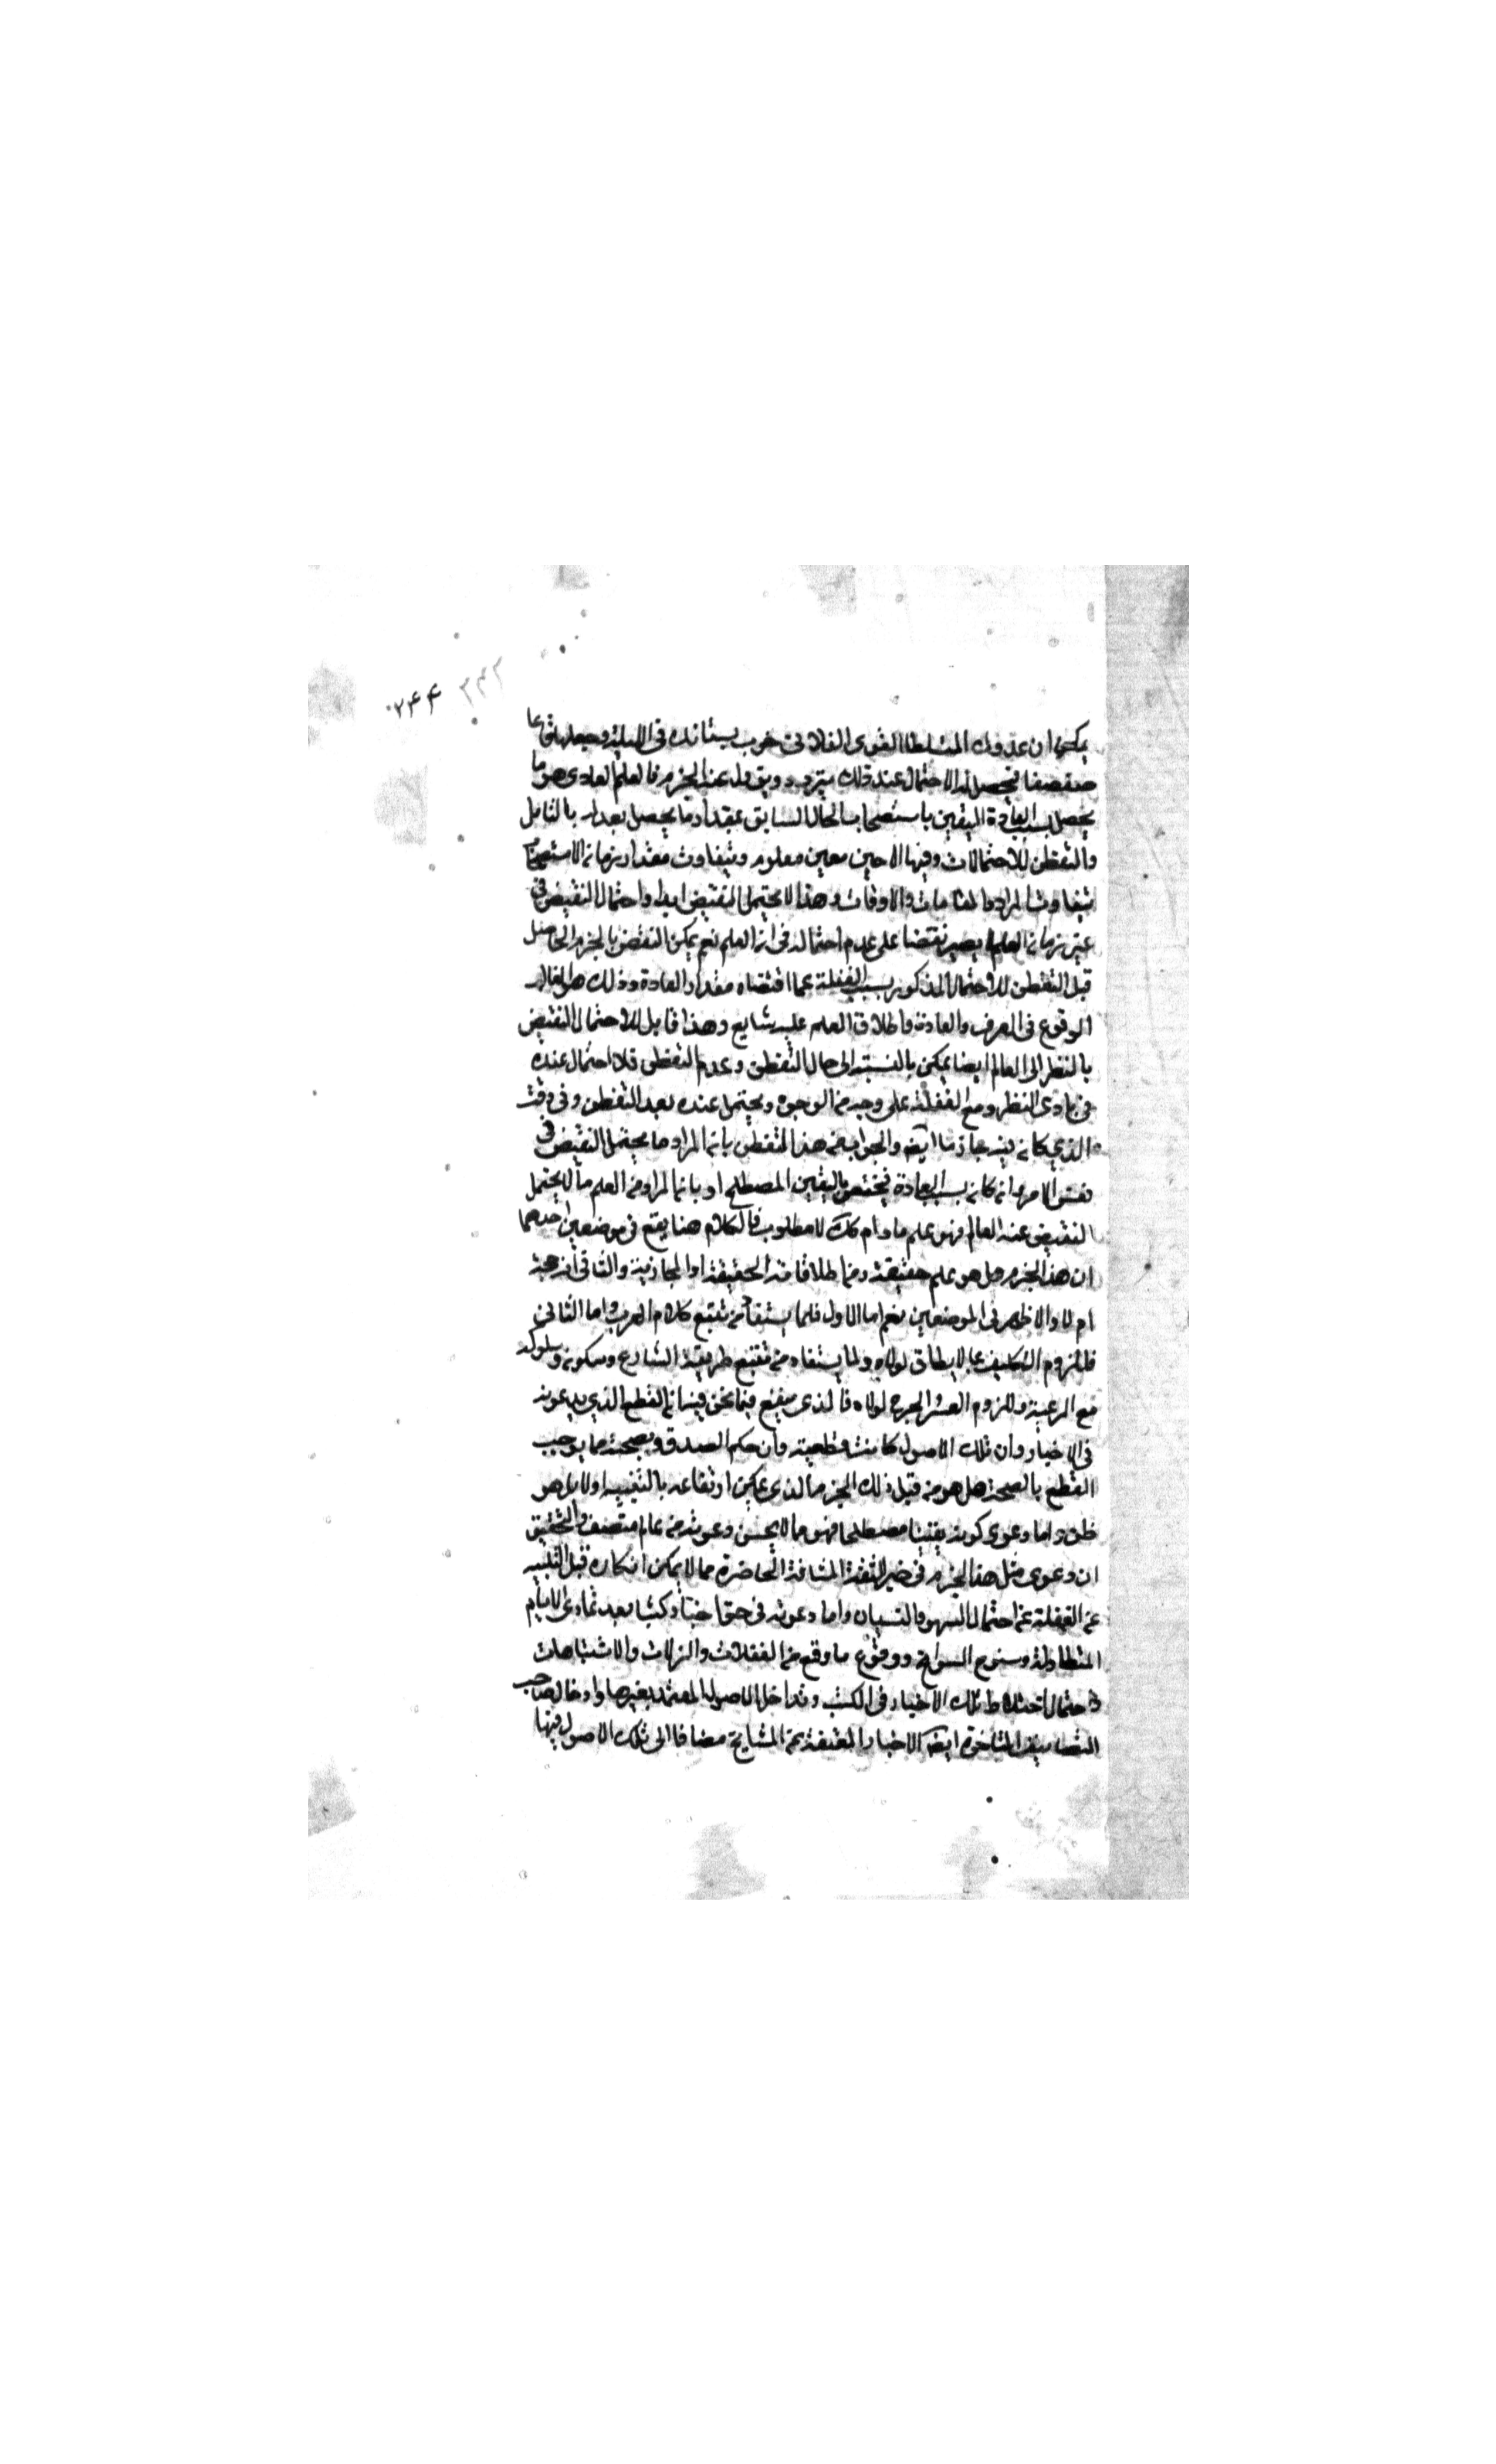 ۲۴۴ ۲۴۲
يمكن ان عدوك المتسلط القوى الفلانى خرب بستانك فى الليلة وجعلها قاعا
صفصفا فيحصل له الاحتمال عند ذلك ويتردد ويزول عنه الجزم فالعلم العادى هو ما
يحصل بسبب العادة اليقين باستصحاب الحال السابق بمقدار ما يحصل بعد بالتامل
والتفطن للاحتمالات وفيها الا حين معين معلوم ويتفاوت مقدار زمان الاستصحاب
بتفاوت المراد والمقامات والاوقات وهذا لا يحتمل النقيض ابدا واحتمال النقيض فى
غير زمان العلم لا يصير نقضا على عدم احتماله فى ان العلم نعم يمكن النقض بالجزم الحاصل
قبل التفطن للاحتمال المذكور بسبب الغفلة عما اقتضاه مقدار العادة وذلك هو الغالب
الوقوع فى العرف والعادة واطلاق العلم عليه شايع وهذا قابل للاحتمال النقيض
بالنظر الى العالم ايضا يمكن بالنسبة الى حال التفطن وعدم التفطن فلا احتمال عنده
فى بادى النظر ومع الغفلة على وجه من الوجوه ويحتمل عنده بعد التفطن وفى وقت
الذي كان فيه جازما ايضا والجواب عن هذا التفطن بان المراد ما يحتمل النقيض فى
نفس الامر وانه كان بسبب العادة فيختص باليقين المصطلح او بان المراد من العلم ما لا يحتمل
النقيض عند العالم فهو علم ما دام كك لا مطلوب فالكلام هنا يقع فى موضعين احدهما
ان هذا الجزم هل هو علم حقيقة ومن اطلاقاته الحقيقة او المجازية والثانى انه حجة
ام لا والاظهر فى الموضعين نعم اما الاول فلما يستفاد من تتبع كلام العرب واما الثانى
فللزوم التكليف بما لا يطاق لولاه ولما يستفاد من تتبع طريقة الشارع وسكونه وسلوكه
مع الرعية وللزوم العسر والحرج لولاه فالذى ينفع فيما نحن فيه ان القطع الذي يدعونه
فى الاخبار وان تلك الاصول كانت قطعية وان حكم الصدوق بصحته مما يوجب
القطع بالصحة هل هو من قبيل ذلك الجزم الذى يمكن ارتفاعه بالتنبيه او لا بل هو
ظن واما دعوى كونه يقينا مصطلحا فهو مما لا يحسن دعوته من عالم منصف والتحقيق
ان دعوى مثل هذا الجزم فى خبر الثقة المشافة الحاضرة مما لا يمكن انكاره قبل التنبيه
عن الغفلة عن احتمال السهو والنسيان واما دعوته فى حق اخبار كتبنا بعد تمادى الايام
المتطاولة وسنوح السوانح ووقوع ما وقع من الغفلات والزلات والاشتباهات
واحتمال اختلاط تلك الاخبار فى الكتب وتداخل الاصول المعتمدة بغيرها وادخال صاحب
التصانيف المتاخرة ايضا الاخبار المتفقة عن المشايخ مضافا الى تلك الاصول فيها